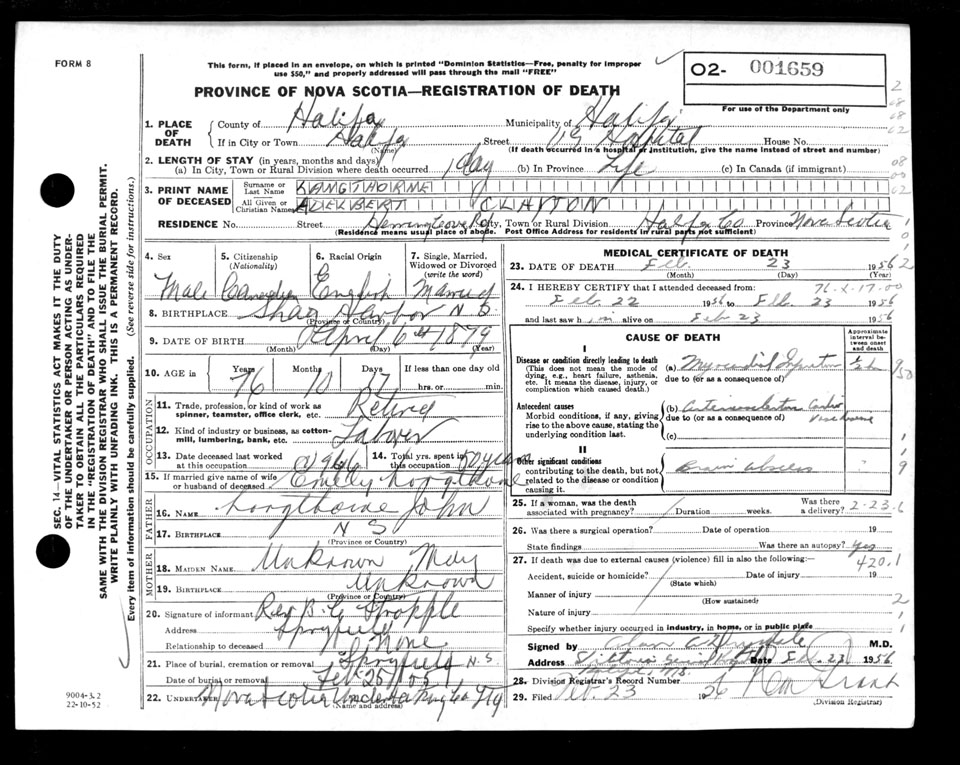 FORM 8
This form, if placed in an envelope, on which is printed "Dominion Statistics—Free, penalty for improper
use $50," and properly addressed will pass through the mail "FREE"
O2- 001659
For use of the Department only
PROVINCE OF NOVA SCOTIA—REGISTRATION OF DEATH
1. PLACE OF DEATH
County of Halifax Municipality of Halifax
If in City or Town Halifax Street Hospital House No.
(Name) (If death occurred in a hospital or institution, give the name instead of street and number)
2. LENGTH OF STAY (in years, months and days)
(a) In City, Town or Rural Division where death occurred 1 day (b) In Province Life (c) In Canada (if immigrant)
3. PRINT NAME OF DECEASED
Surname or Last Name LANGTHORNE
All Given or Christian Names ADELBERT CLAYTON
RESIDENCE No. Street Herring Cove Rd City, Town or Rural Division Halifax Co Province Nova Scotia
(Residence means usual place of abode. Post Office Address for residents in rural parts not sufficient)
4. Sex
Male
5. Citizenship (Nationality)
Canadian
6. Racial Origin
English
7. Single, Married, Widowed or Divorced (write the word)
Married
8. BIRTHPLACE Shag Harbor N.S.
(Province or Country)
9. DATE OF BIRTH April 6th 1879
(Month) (Day) (Year)
10. AGE in Years 76 Months 10 Days 17 If less than one day old
hrs. or min.
OCCUPATION
11. Trade, profession, or kind of work as spinner, teamster, office clerk, etc. Retired
12. Kind of industry or business, as cotton-mill, lumbering, bank, etc. Laborer
13. Date deceased last worked at this occupation 1946
14. Total yrs. spent in this occupation 50 years
15. If married give name of wife or husband of deceased Emily Longthorne
FATHER
16. NAME Longthorne John
17. BIRTHPLACE N S
(Province or Country)
MOTHER
18. MAIDEN NAME Unknown May
19. BIRTHPLACE Unknown
(Province or Country)
20. Signature of informant Rev B. G.
Address Spryfield
Relationship to deceased None
21. Place of burial, cremation or removal Spryfield N.S.
Date of burial or removal Feb 25
22. UNDERTAKER Nova Scotia Undertaking Co
(Name and address)
MEDICAL CERTIFICATE OF DEATH
23. DATE OF DEATH Feb. 23 1956
(Month) (Day) (Year)
24. I HEREBY CERTIFY that I attended deceased from:
Feb. 22 1956 to Feb. 23 1956
and last saw him alive on Feb 23 1956
CAUSE OF DEATH
Approximate interval between onset and death
I
Disease or condition directly leading to death
(This does not mean the mode of dying, e.g., heart failure, asthenia, etc. It means the disease, injury, or complication which caused death.)
(a) Myocardial Infarction
due to (or as a consequence of)
Antecedent causes
Morbid conditions, if any, giving rise to the above cause, stating the underlying condition last.
(b)
due to (or as a consequence of)
(c)
II
Other significant conditions
contributing to the death, but not related to the disease or condition causing it.
Brain Abscess
25. If a woman, was the death associated with pregnancy? Duration weeks. Was there a delivery? 2-23.6
26. Was there a surgical operation? Date of operation 19
State findings Was there an autopsy? Yes
27. If death was due to external causes (violence) fill in also the following: 420.1
Accident, suicide or homicide? Date of injury 19
(State which)
Manner of injury
(How sustained)
Nature of injury
Specify whether injury occurred in industry, in home, or in public place
Signed by M.D.
Address Date Feb. 23 1956
28. Division Registrar's Record Number
29. Filed Feb. 23 1956
(Division Registrar)
SEC. 14—VITAL STATISTICS ACT MAKES IT THE DUTY
OF THE UNDERTAKER OR PERSON ACTING AS UNDER-
TAKER TO OBTAIN ALL THE PARTICULARS REQUIRED
IN THE "REGISTRATION OF DEATH" AND TO FILE THE
SAME WITH THE DIVISION REGISTRAR WHO SHALL ISSUE THE BURIAL PERMIT.
WRITE PLAINLY WITH UNFADING INK. THIS IS A PERMANENT RECORD.
Every item of information should be carefully supplied. (See reverse side for instructions.)
9004-3.2
22-10-52